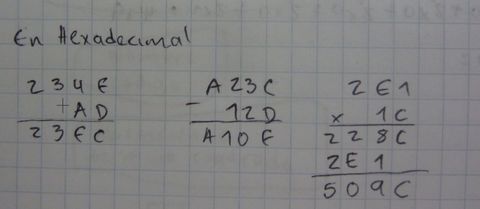 En Hexadecimal
234F A23C 2E1
+AD - 12D x 1C
23FC A10F 228C
2E1
509C